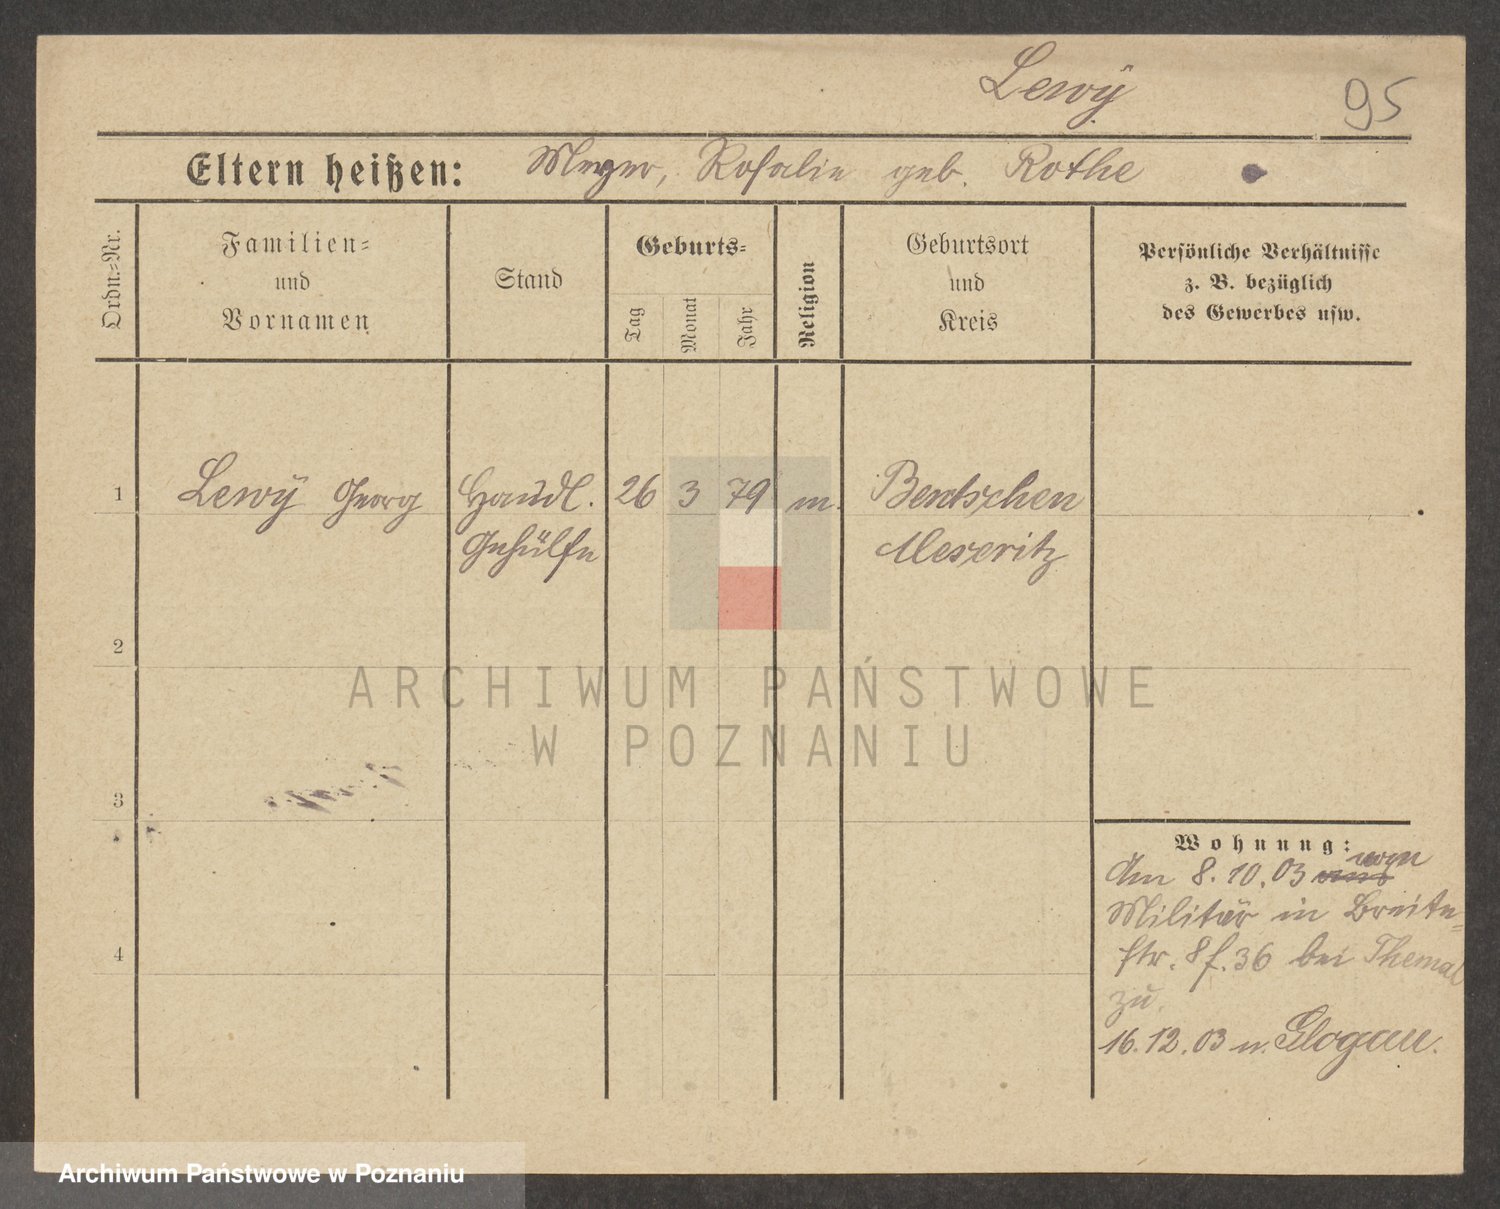 Lewÿ
95
Eltern heißen: Meyer, Rosalie geb. Rothe
Ordn.=Nr.
Familien=
und
Vornamen
Stand
Geburts=
Tag
Monat
Jahr
Religion
Geburtsort
und
Kreis
Persönliche Verhältnisse
z. B. bezüglich
des Gewerbes usw.
1 Lewÿ Georg Handl. 26 3 79 m. Bentschen
Gehülfe Meseritz
2
3
4
Wohnung:
Am 8.10.03 vom
Militär in Breite=
str. 8 f. 36 bei Themal
zu.
16.12.03 n. Glogau.
ARCHIWUM PAŃSTWOWE
W POZNANIU
Archiwum Państwowe w Poznaniu